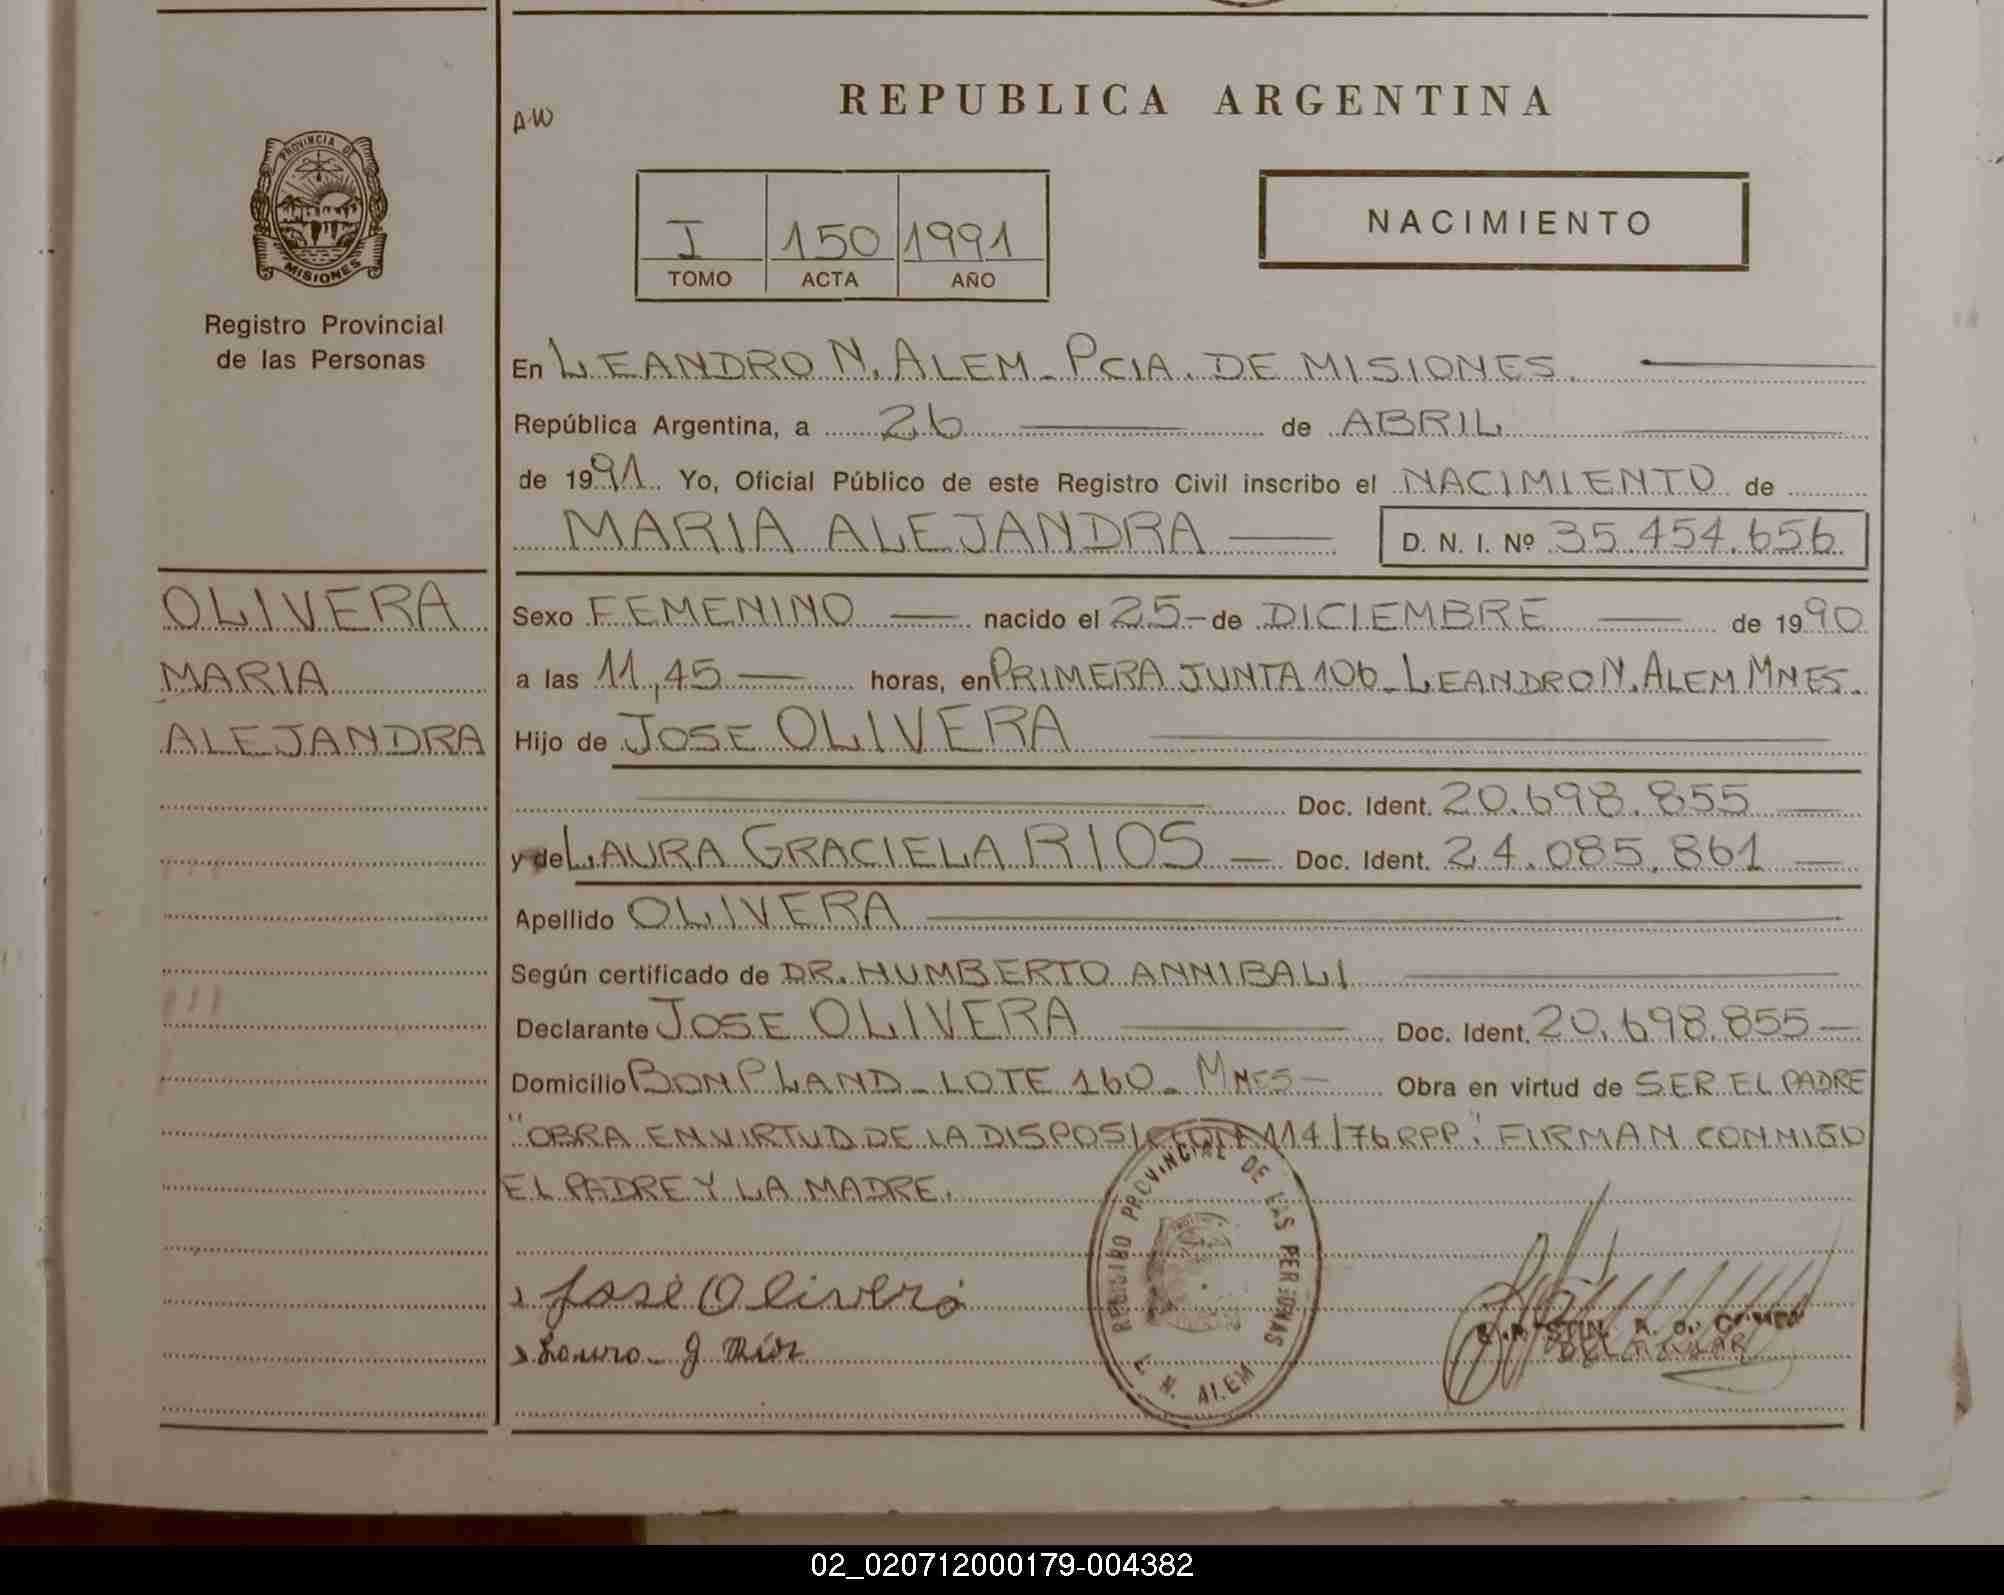 REPUBLICA ARGENTINA
A.W
PROVINCIA DE
MISIONES
Registro Provincial
de las Personas
I 150 1991
TOMO ACTA AÑO
NACIMIENTO
En LEANDRO N. ALEM - PCIA. DE MISIONES.
República Argentina, a 26 de ABRIL
de 1991. Yo, Oficial Público de este Registro Civil inscribo el NACIMIENTO de
MARIA ALEJANDRA D. N. I. Nº 35.454.656
OLIVERA
MARIA
ALEJANDRA
Sexo FEMENINO nacido el 25 - de DICIEMBRE de 1990
a las 11,45 horas, en PRIMERA JUNTA 106 - LEANDRO N. ALEM MNES.
Hijo de JOSE OLIVERA
Doc. Ident. 20.698.855
y de LAURA GRACIELA RIOS - Doc. Ident. 24.085.861
Apellido OLIVERA
Según certificado de DR. HUMBERTO ANNIBALI
Declarante JOSE OLIVERA Doc. Ident. 20.698.855
Domicilio BONPLAND - LOTE 160 - MNES - Obra en virtud de SER EL PADRE
"OBRA EN VIRTUD DE LA DISPOSICION 114/76 RPP". FIRMAN CONMIGO
EL PADRE Y LA MADRE.
REGISTRO PROVINCIAL DE LAS PERSONAS
L. N. ALEM
José Olivera
Laura G Ríos
02_020712000179-004382